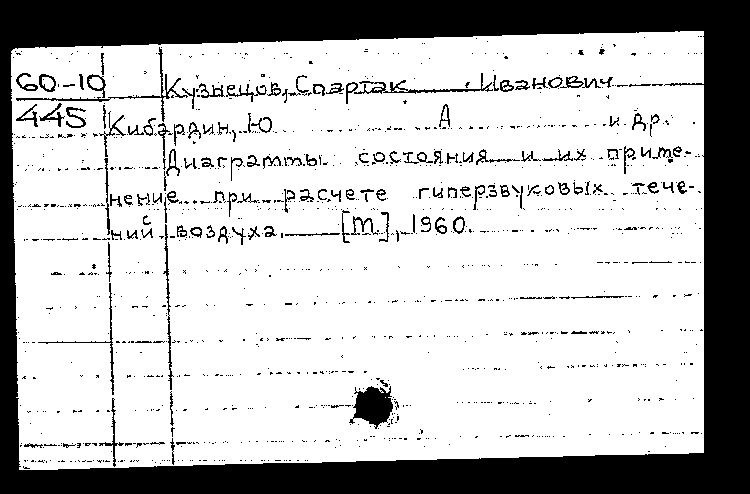 60-10 Кузнецов, Спартак Иванович
445 Кибардин, Ю А и др.
Диаграммы состояния и их приме-
нение при расчете гиперзвуковых тече-
ний с воздуха. [М], 1960.